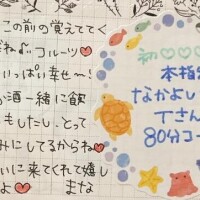 この前の覚えててく
ね♪ フルーツ♥
いっぱい幸せ〜!
お酒一緒に飲
もしたし、とって
みにしてるからね♥
いに来てくれて嬉し
よ♥ まな
初♡♡♡
本指名
なかよし
Tさん
80分コー